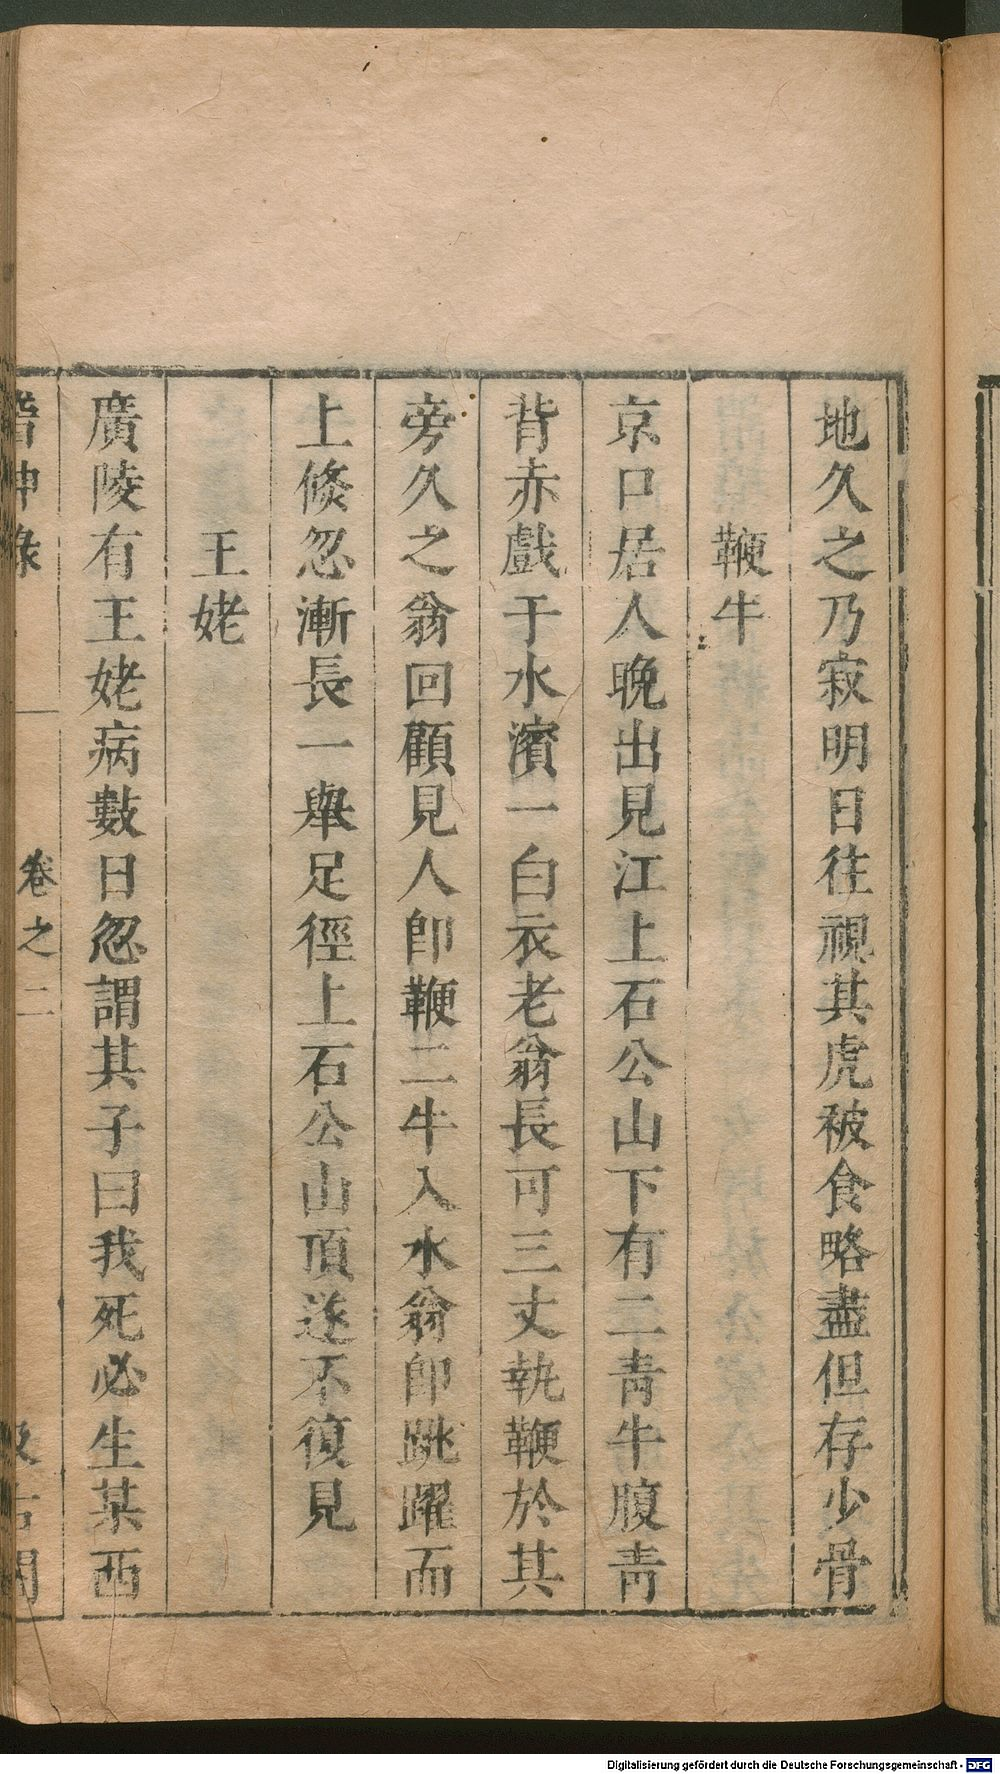 地久之乃寂明日往視其虎被食略盡但存少骨
鞭牛
京口居人晚出見江上石公山下有二青牛腹青
背赤戲于水濱一白衣老翁長可三丈執鞭於其
旁久之翁回顧見人即鞭二牛入水翁即跳躍而
上倐忽漸長一舉足徑上石公山頂遂不復見
王姥
廣陵有王姥病數日忽謂其子曰我死必生某西
卷之二
Digitalisierung gefördert durch die Deutsche Forschungsgemeinschaft - DFG